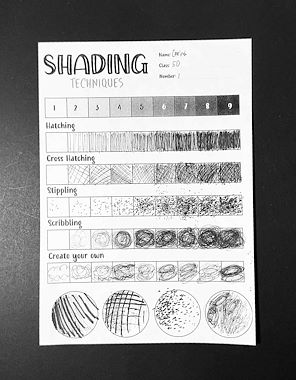 SHADING
TECHNIQUES
Name:
Class: 5D
Number: 1
1 2 3 4 5 6 7 8 9
Hatching
Cross Hatching
Stippling
Scribbling
Create your own